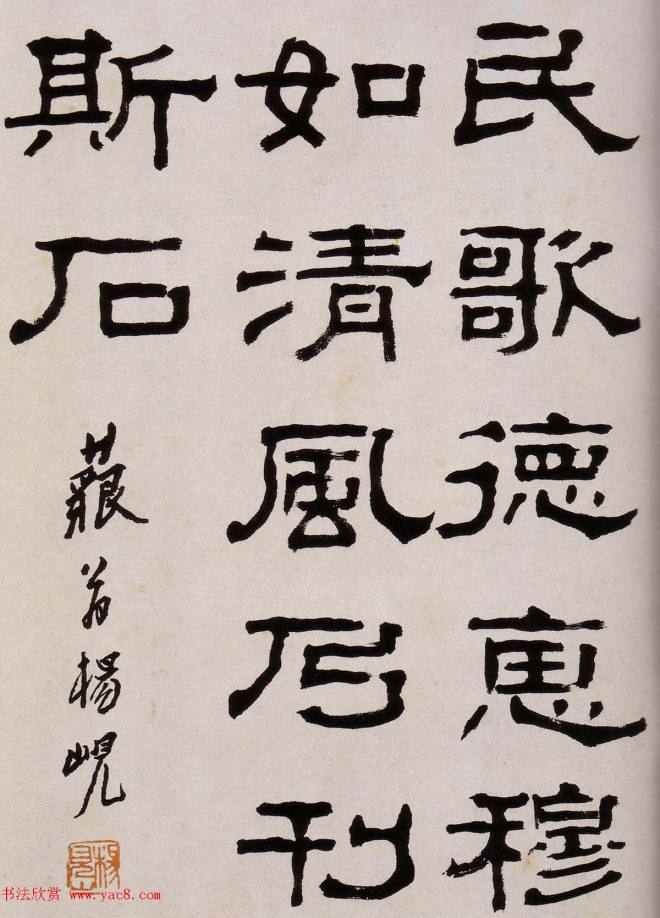 民歌德惠穆
如清風乃刊
斯石
藐翁楊峴
书法欣赏 www.yac8.com